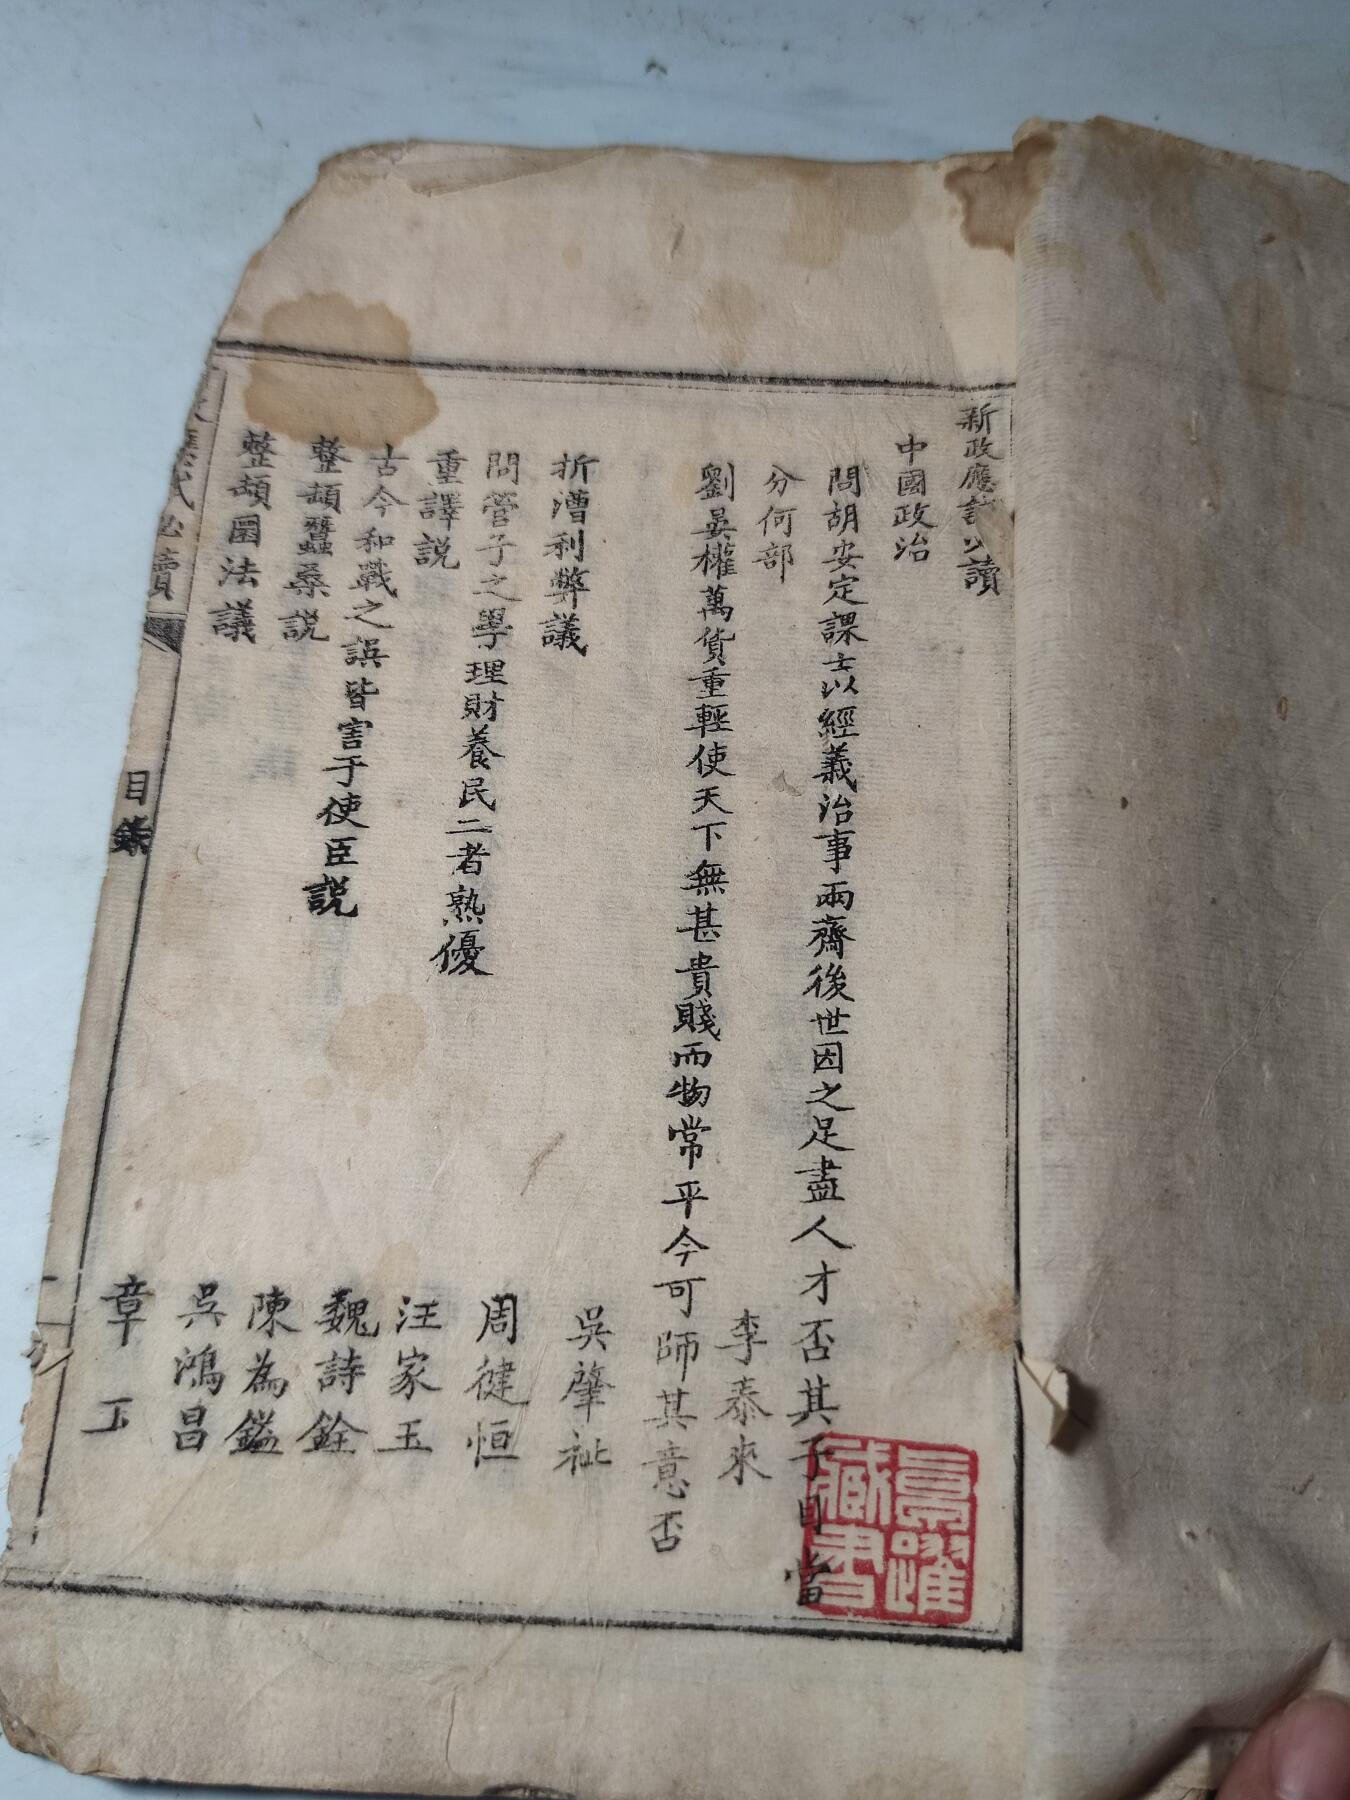 新政應試必讀
中國政治
問胡安定課士以經義治事兩齋後世因之足盡人才否其子目當
分何部
李泰來
劉晏權萬貨重輕使天下無甚貴賤而物常平今可師其意否
吳肇祉
折漕利弊議
周健恒
問管子之學理財養民二者熟優
汪家玉
重譯説
魏詩銓
古今和戰之誤皆害于使臣説
陳為鎰
整頓蠶桑説
吳鴻昌
整頓圜法議
章
試必讀
目錄
一
景濯藏書